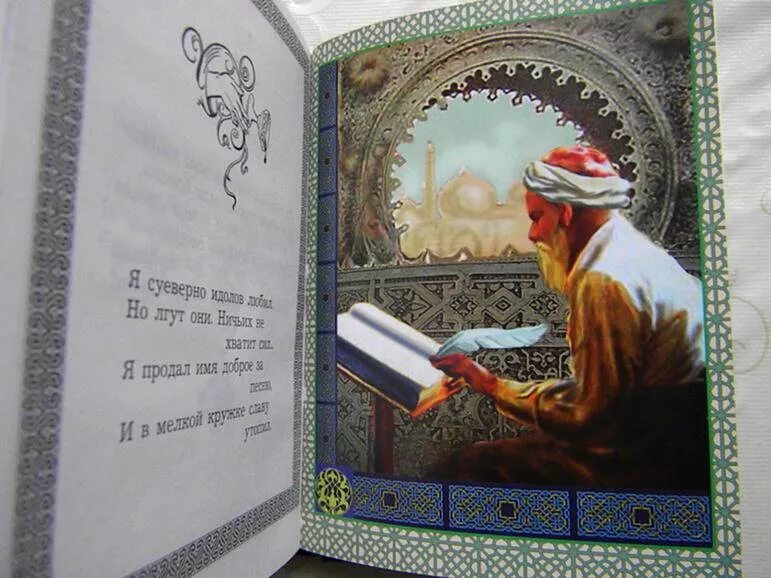 Я суеверно идолов любил.
Но лгут они. Ничьих не
хватит сил..
Я продал имя доброе за
песню,
И в мелкой кружке славу
утопил.